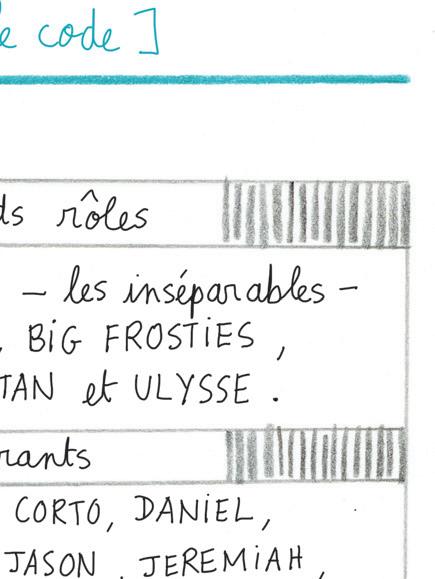 le code ]
ds rôles
– les inséparables –
. BiG FROSTiES ,
TAN et ULYSSE .
rants
CORTO, DANiEL,
JASON , JEREMiAH ,